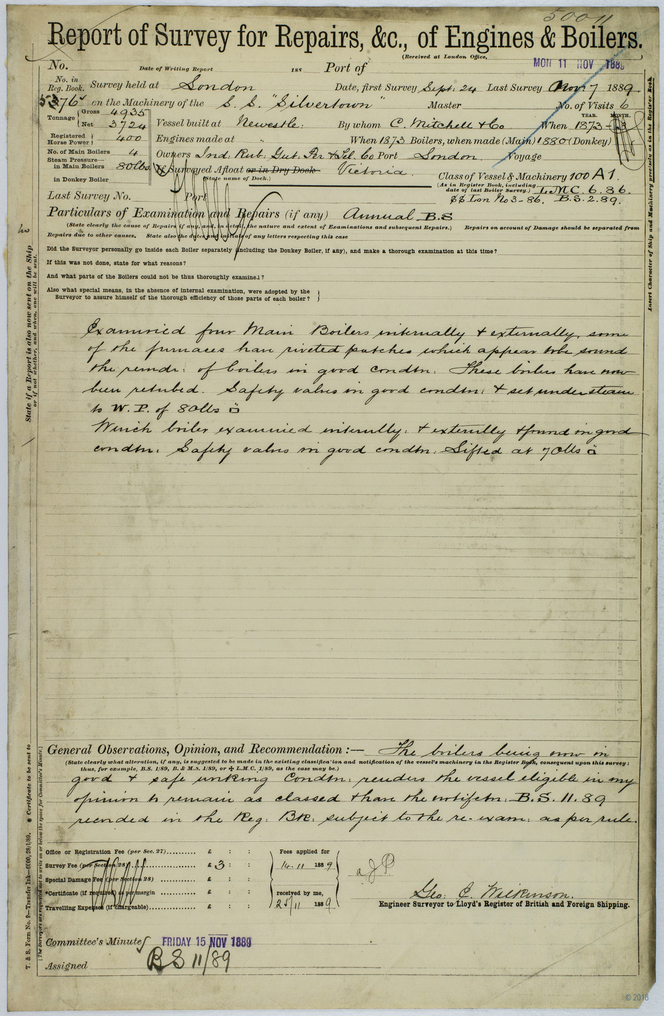 50011
Report of Survey for Repairs, &c., of Engines & Boilers.
(Received at London Office,
MON 11 NOV 1889
No. Date of Writing Report 188 Port of
No. in Reg. Book. Survey held at London Date, first Survey Sept. 24 Last Survey Nov 7 1889
5376 on the Machinery of the S.S. "Silvertown" Master No. of Visits 6
Tonnage Gross 4935
Net 3724 Vessel built at Newcastle: By whom C. Mitchell & Co When YEAR. 1873 MONTH.
Registered Horse Power 400 Engines made at " When 1873 Boilers, when made (Main) 1880 (Donkey)
No. of Main Boilers 4 Owners Ind. Rub. Gut. Per & Tel. Co Port London Voyage
Steam Pressure in Main Boilers 80lbs If Surveyed Afloat or in Dry Dock Victoria
(State name of Dock.)
in Donkey Boiler
Class of Vessel & Machinery 100 A1.
(As in Register Book, including date of last Boiler Survey.) L.M.C. 6.86.
Last Survey No. Port SS Lon No 3-86. B.S. 2.89.
Particulars of Examination and Repairs (if any) Annual B.S
(State clearly the cause of Repairs, if any, in every instance, the nature and extent of Examinations and subsequent Repairs.) Repairs on account of Damage should be separated from
Repairs due to other causes.
Did the Surveyor personally go inside each Boiler separately (including the Donkey Boiler, if any), and make a thorough examination at this time?
If this was not done, state for what reasons?
And what parts of the Boilers could not be thus thoroughly examined?
Also what special means, in the absence of internal examination, were adopted by the
Surveyor to assure himself of the thorough efficiency of those parts of each boiler?
Examined four Main Boilers internally & externally, some
of the furnaces have riveted patches which appear to be sound
the remdr: of boilers in good condtn: These boilers have now
been retubed. Safety valves in good condtn: & set under steam
to W.P. of 80lbs □
Winch boiler examined internally: & externlly & found in good
condtn: Safety valves in good condtn: Lifted at 70lbs □
General Observations, Opinion, and Recommendation:— The boilers being now in
(State clearly what alteration, if any, is suggested to be made in the existing classification and notification of the vessel's machinery in the Register Book, consequent upon this survey;
thus, for example, B.S. 1/89, B. & M.S. 1/89, or L.M.C. 1/89, as the case may be.)
good & safe working condtn: renders the vessel eligible in my
opinion to remain as classed & have the notifctn: B.S. 11.89
recorded in the Reg: Bk: subject to the re-exam: as per rule.
Office or Registration Fee (per Sec. 27) £ : :
Survey Fee (per Section 28) £ 3 : :
Special Damage Fee (per Section 28) £ : :
*Certificate (if required) as per margin £ : :
Travelling Expenses (if chargeable) £ : :
Fees applied for
14.11 1889
received by me,
25/11 1889
Geo: C. Wilkinson.
Engineer Surveyor to Lloyd's Register of British and Foreign Shipping.
Committee's Minute FRIDAY 15 NOV 1889
Assigned B S 11/89
State if a Report is also now sent on the Ship
or if not, whether, and when, one will be sent.
Insert Character of Ship and Machinery precisely as in the Register Book.
* Certificate to be sent to
(The Surveyors are requested not to write on or below the space for Committee's Minute.)
© 2018